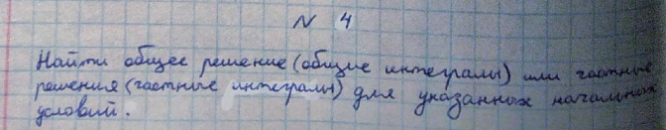 N 4
Найти общее решение (общие интегралы) или частные
решения (частные интегралы) для указанных начальных
условий.